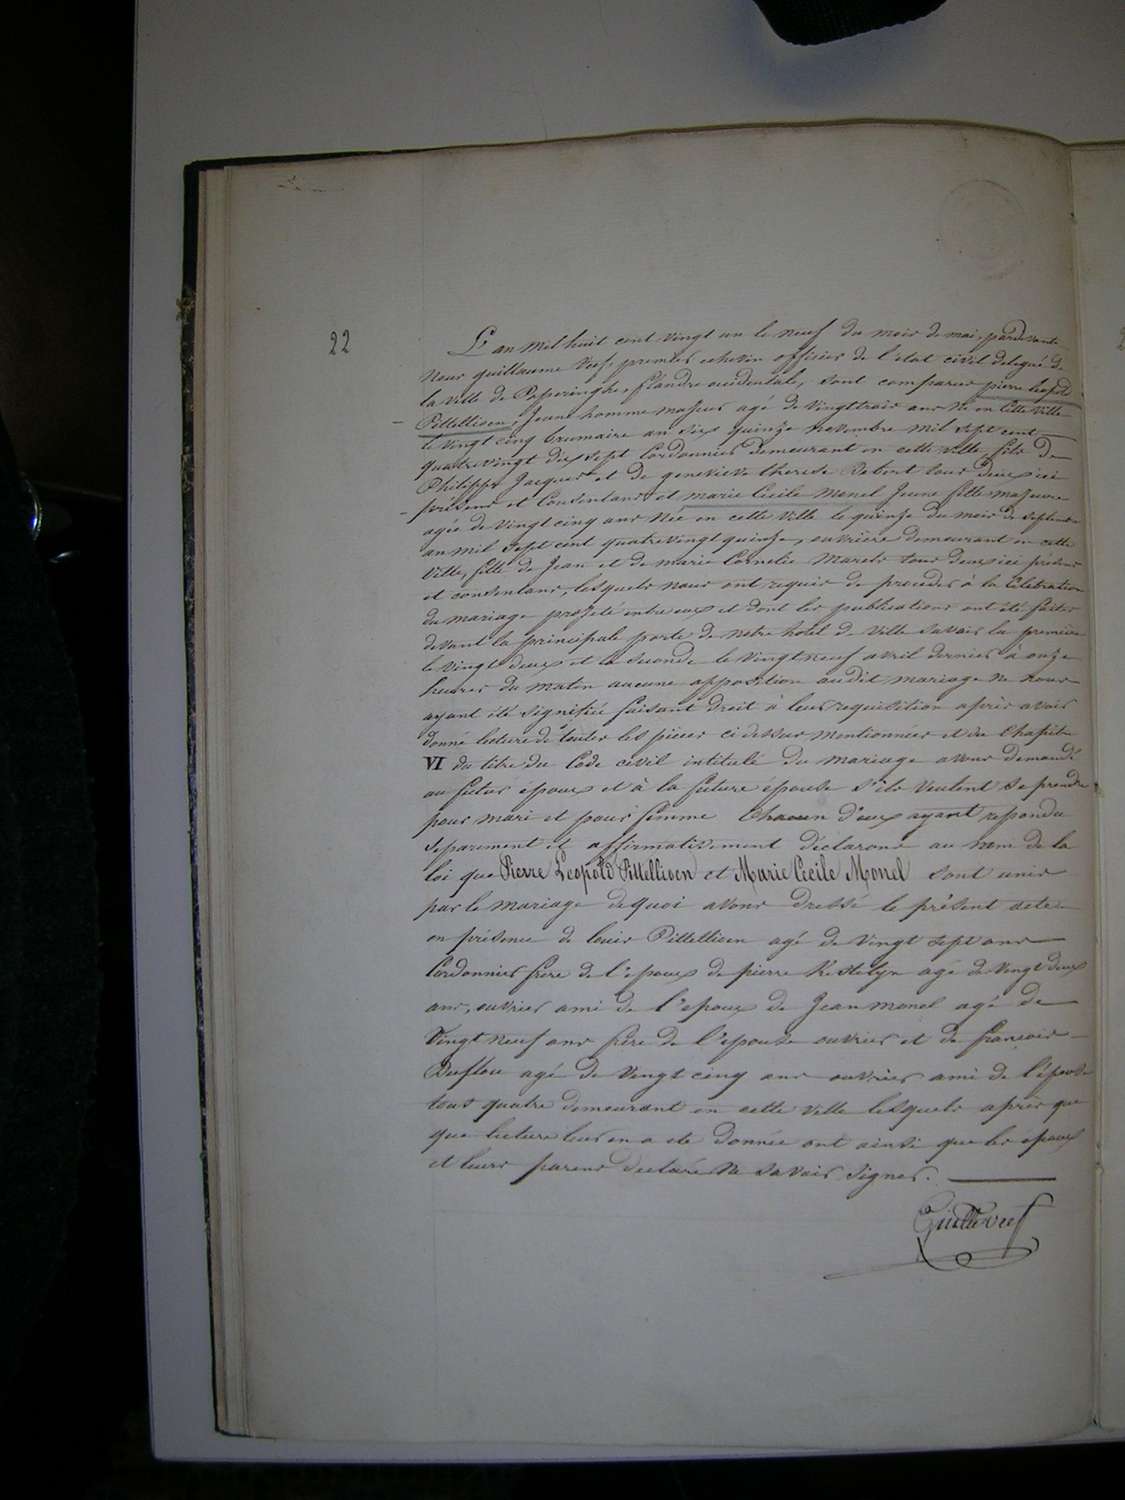 22
L'an mil huit cent vingt un le neuf du mois de mai, pardevant
Nous guillaume Veef, premier echevin officier de l'etat civil delegué de
la ville de Poperinghe, flandre occidentale, sont comparus pierre Leopold
Pittellioen, Jeune homme majeur agé de vingttrois ans né en cette ville
le vingt cinq brumaire an six quinze novembre mil sept cent
quatrevingt dix sept Cordonnier demeurant en cette ville fils de
Philippe Jacques et de genevieve therese tous deux ici
présens et consentans et marie Cecile Monel Jeune fille majeure
agée de vingt cinq ans née en cette ville le quinze du mois de septembre
an mil sept cent quatrevingt quinze, ouvrière demeurant en cette
ville, fille de Jean et de marie Cornelie tous deux ici présens
et consentans, lesquels nous ont requis de proceder à la Célébration
du mariage projeté entre eux et dont les publications ont été faites
devant la principale porte de notre hotel de ville savoir la premiere
le vingt deux et la seconde le vingt neuf avril dernier à onze
heures du matin aucune opposition audit mariage ne nous
ayant été signifiée faisant droit à leur requisition après avoir
donné lecture de toutes les pieces ci dessus mentionnées et du Chapitre
VI du titre du Code civil intitulé du mariage avons demandé
au futur époux et à la future épouse s'ils veulent se prendre
pour mari et pour femme Chacun d'eux ayant repondu
séparement et affirmativement déclarons au nom de la
loi que Pierre Leopold Pittellioen et Marie Cecile Monel sont unis
par le mariage de quoi avons dressé le présent acte
en présence de louis Pittellioen agé de vingt sept ans
Cordonnier frère de l'epoux de pierre Kestelyn agé de vingt deux
ans, ouvrier ami de l'epoux de Jean monel agé de
vingt neuf ans frère de l'epouse ouvrier et de françois
Duflou agé de vingt cinq ans ouvrier ami de l'épouse
tous quatre demeurant en cette ville lesquels après que
que lecture leur en a été donnée ont ainsi que les époux
et leurs parens declaré ne savoir signer.
Guille veef